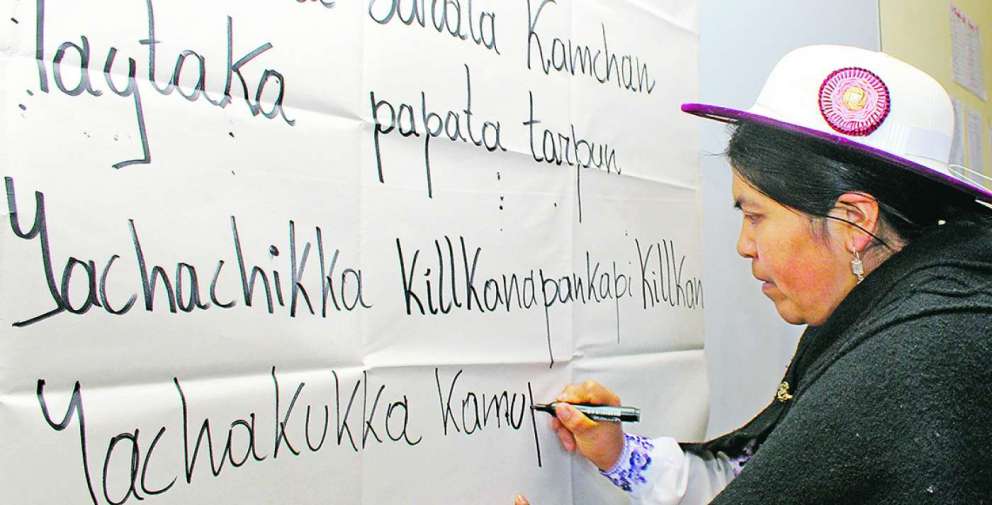 Sarata Kamchan
Taytaka papata tarpun
Yachachikka killkanapankapi killkan
Yachakukka kamup